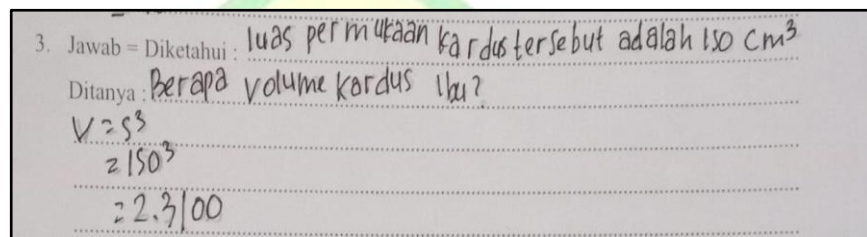 3. Jawab = Diketahui : luas permukaan kardus tersebut adalah 150 cm³
Ditanya : Berapa volume kardus Ibu?
V = s³
= 150³
= 2.3100